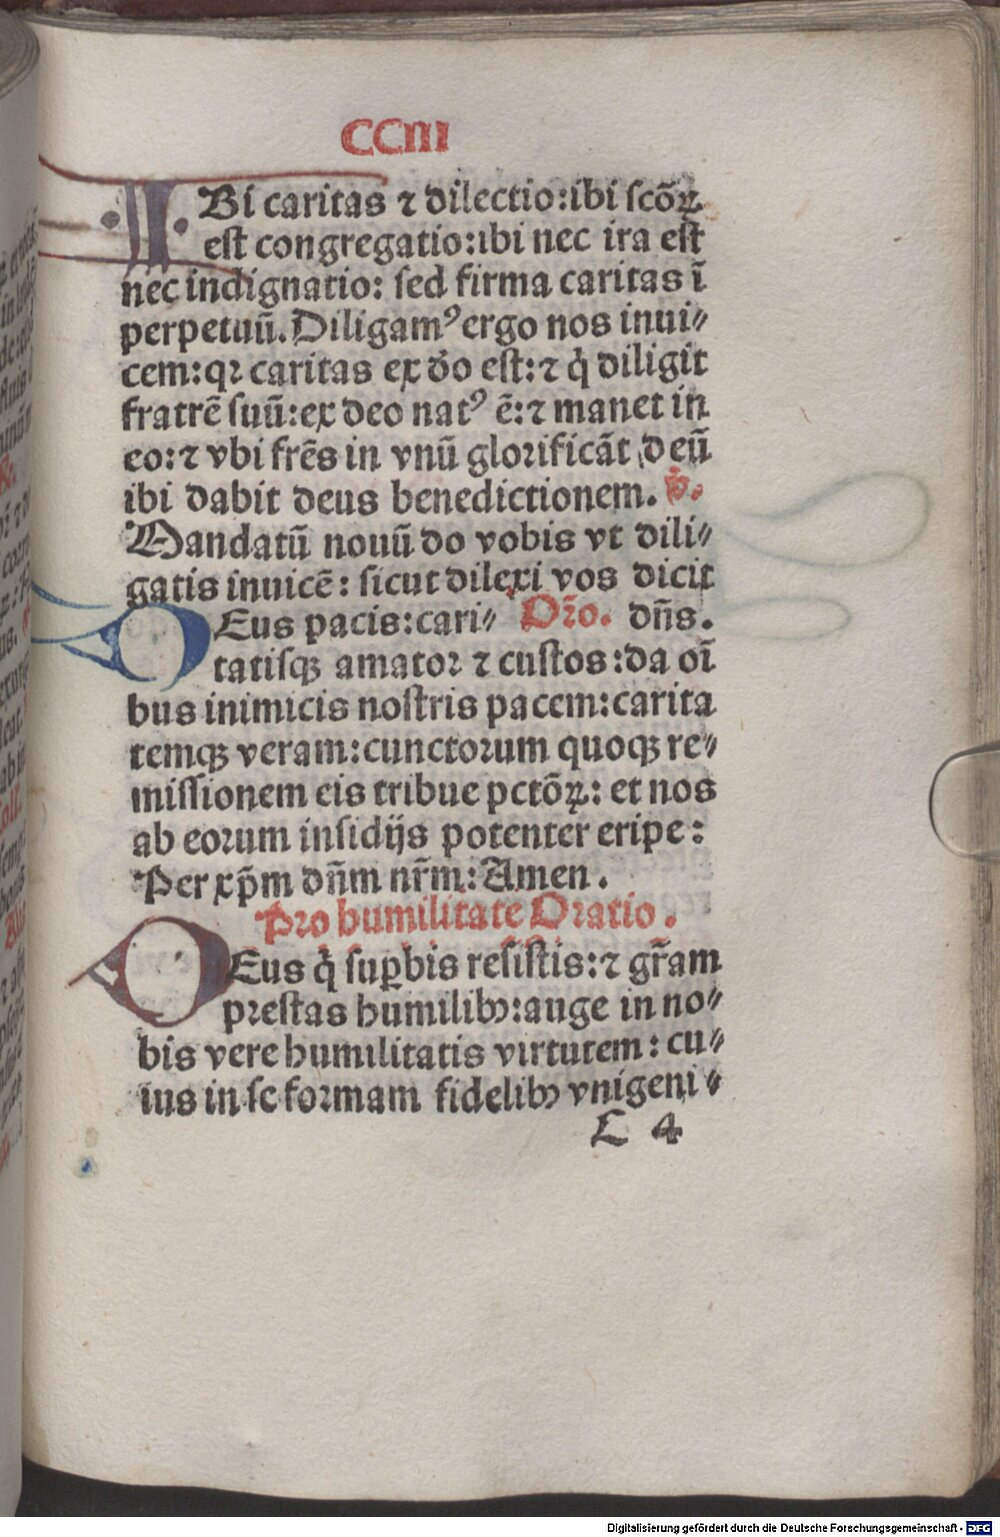 CCIII
IBi caritas ⁊ dilectio:ibi ſcōꝝ
eſt congregatio:ibi nec ira eſt
nec indignatio: ſed firma caritas ī
perpetuū. Diligamꝰ ergo nos inui⸗
cem:qꝛ caritas ex dō eſt:⁊ q̇ diligit
fratrē ſuū:ex deo natꝰ ē:⁊ manet in
eo:⁊ vbi frēs in vnū gloꝛificāt deū
ibi dabit deus benedictionem. ℣.
Mandatū nouū do vobis vt dili⸗
gatis inuicē: ſicut dilexi vos dicit
DEus pacis:cari⸗ Oꝛ̄o. dn̄s.
tatiſqꝫ amatoꝛ ⁊ cuſtos:da oī
bus inimicis noſtris pacem:carita
temqꝫ veram:cunctoꝛum quoqꝫ re⸗
miſſionem eis tribue pctōꝝ: et nos
ab eorum inſidijs potenter eripe:
Per xp̄m dn̄m nr̄m: Amen.
Pro humilitate Oꝛatio.
DEus q̇ ſuꝑbis reſiſtis:⁊ gr̄am
pꝛeſtas humilibꝰ:auge in no⸗
bis vere humilitatis virtutem: cu⸗
ius in ſe foꝛmam fidelibꝰ vnigeni⸗
L 4
Digitalisierung gefördert durch die Deutsche Forschungsgemeinschaft - DFG